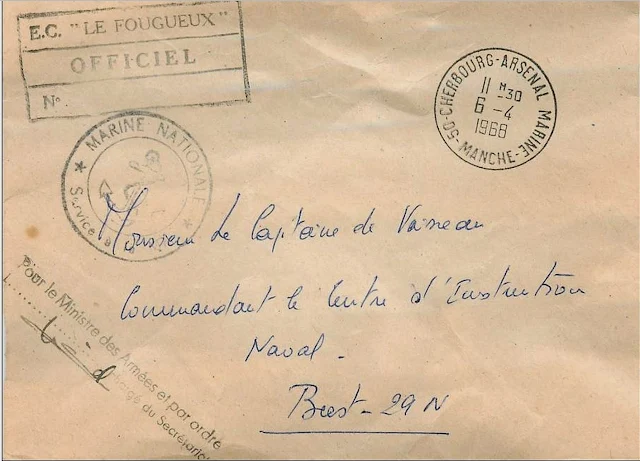 E.C. "LE FOUGUEUX"
OFFICIEL
N°
50-CHERBOURG-ARSENAL MARINE-MANCHE-
11 H 30
6 - 4
1968
★ MARINE NATIONALE ★
Service à la
Monsieur Le Capitaine de Vaisseau
Commandant le Centre d'Instruction
Naval -
Brest - 29 N
Pour le Ministre des Armées et par ordre
L..................
chargé du Secrétariat